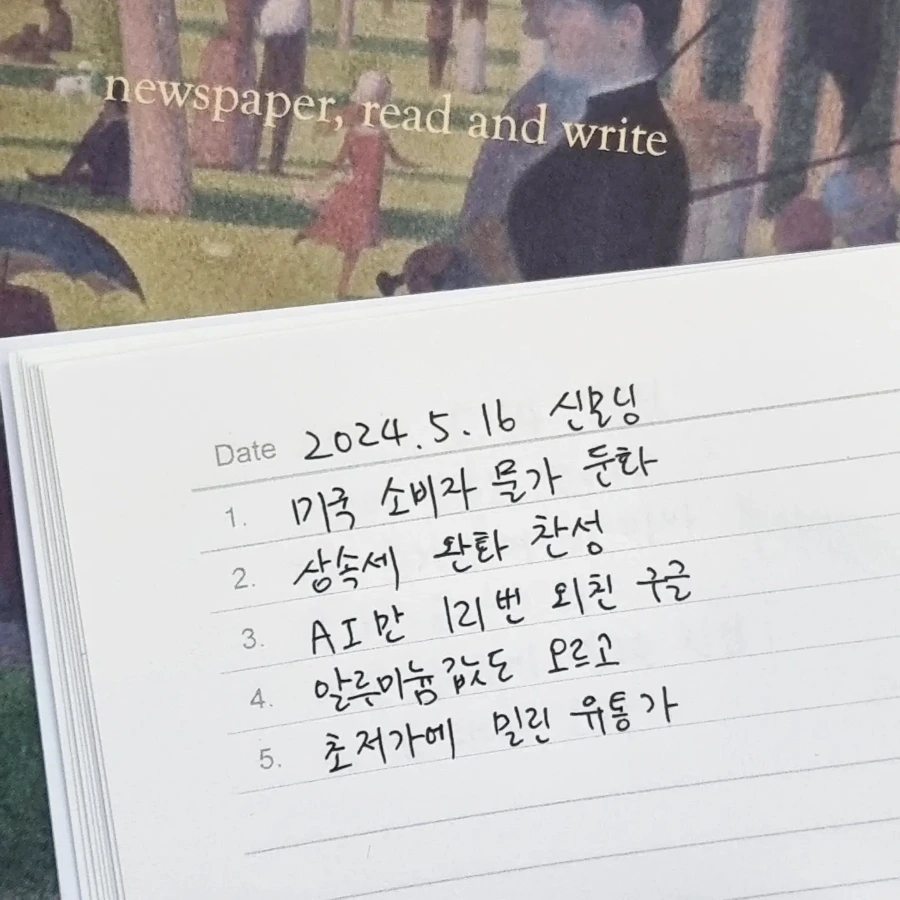 newspaper, read and write
Date 2024.5.16 신모닝
1. 미국 소비자 물가 둔화
2. 상속세 완화 찬성
3. AI만 121번 외친 구글
4. 알루미늄값도 오르고
5. 초저가에 밀린 유통가